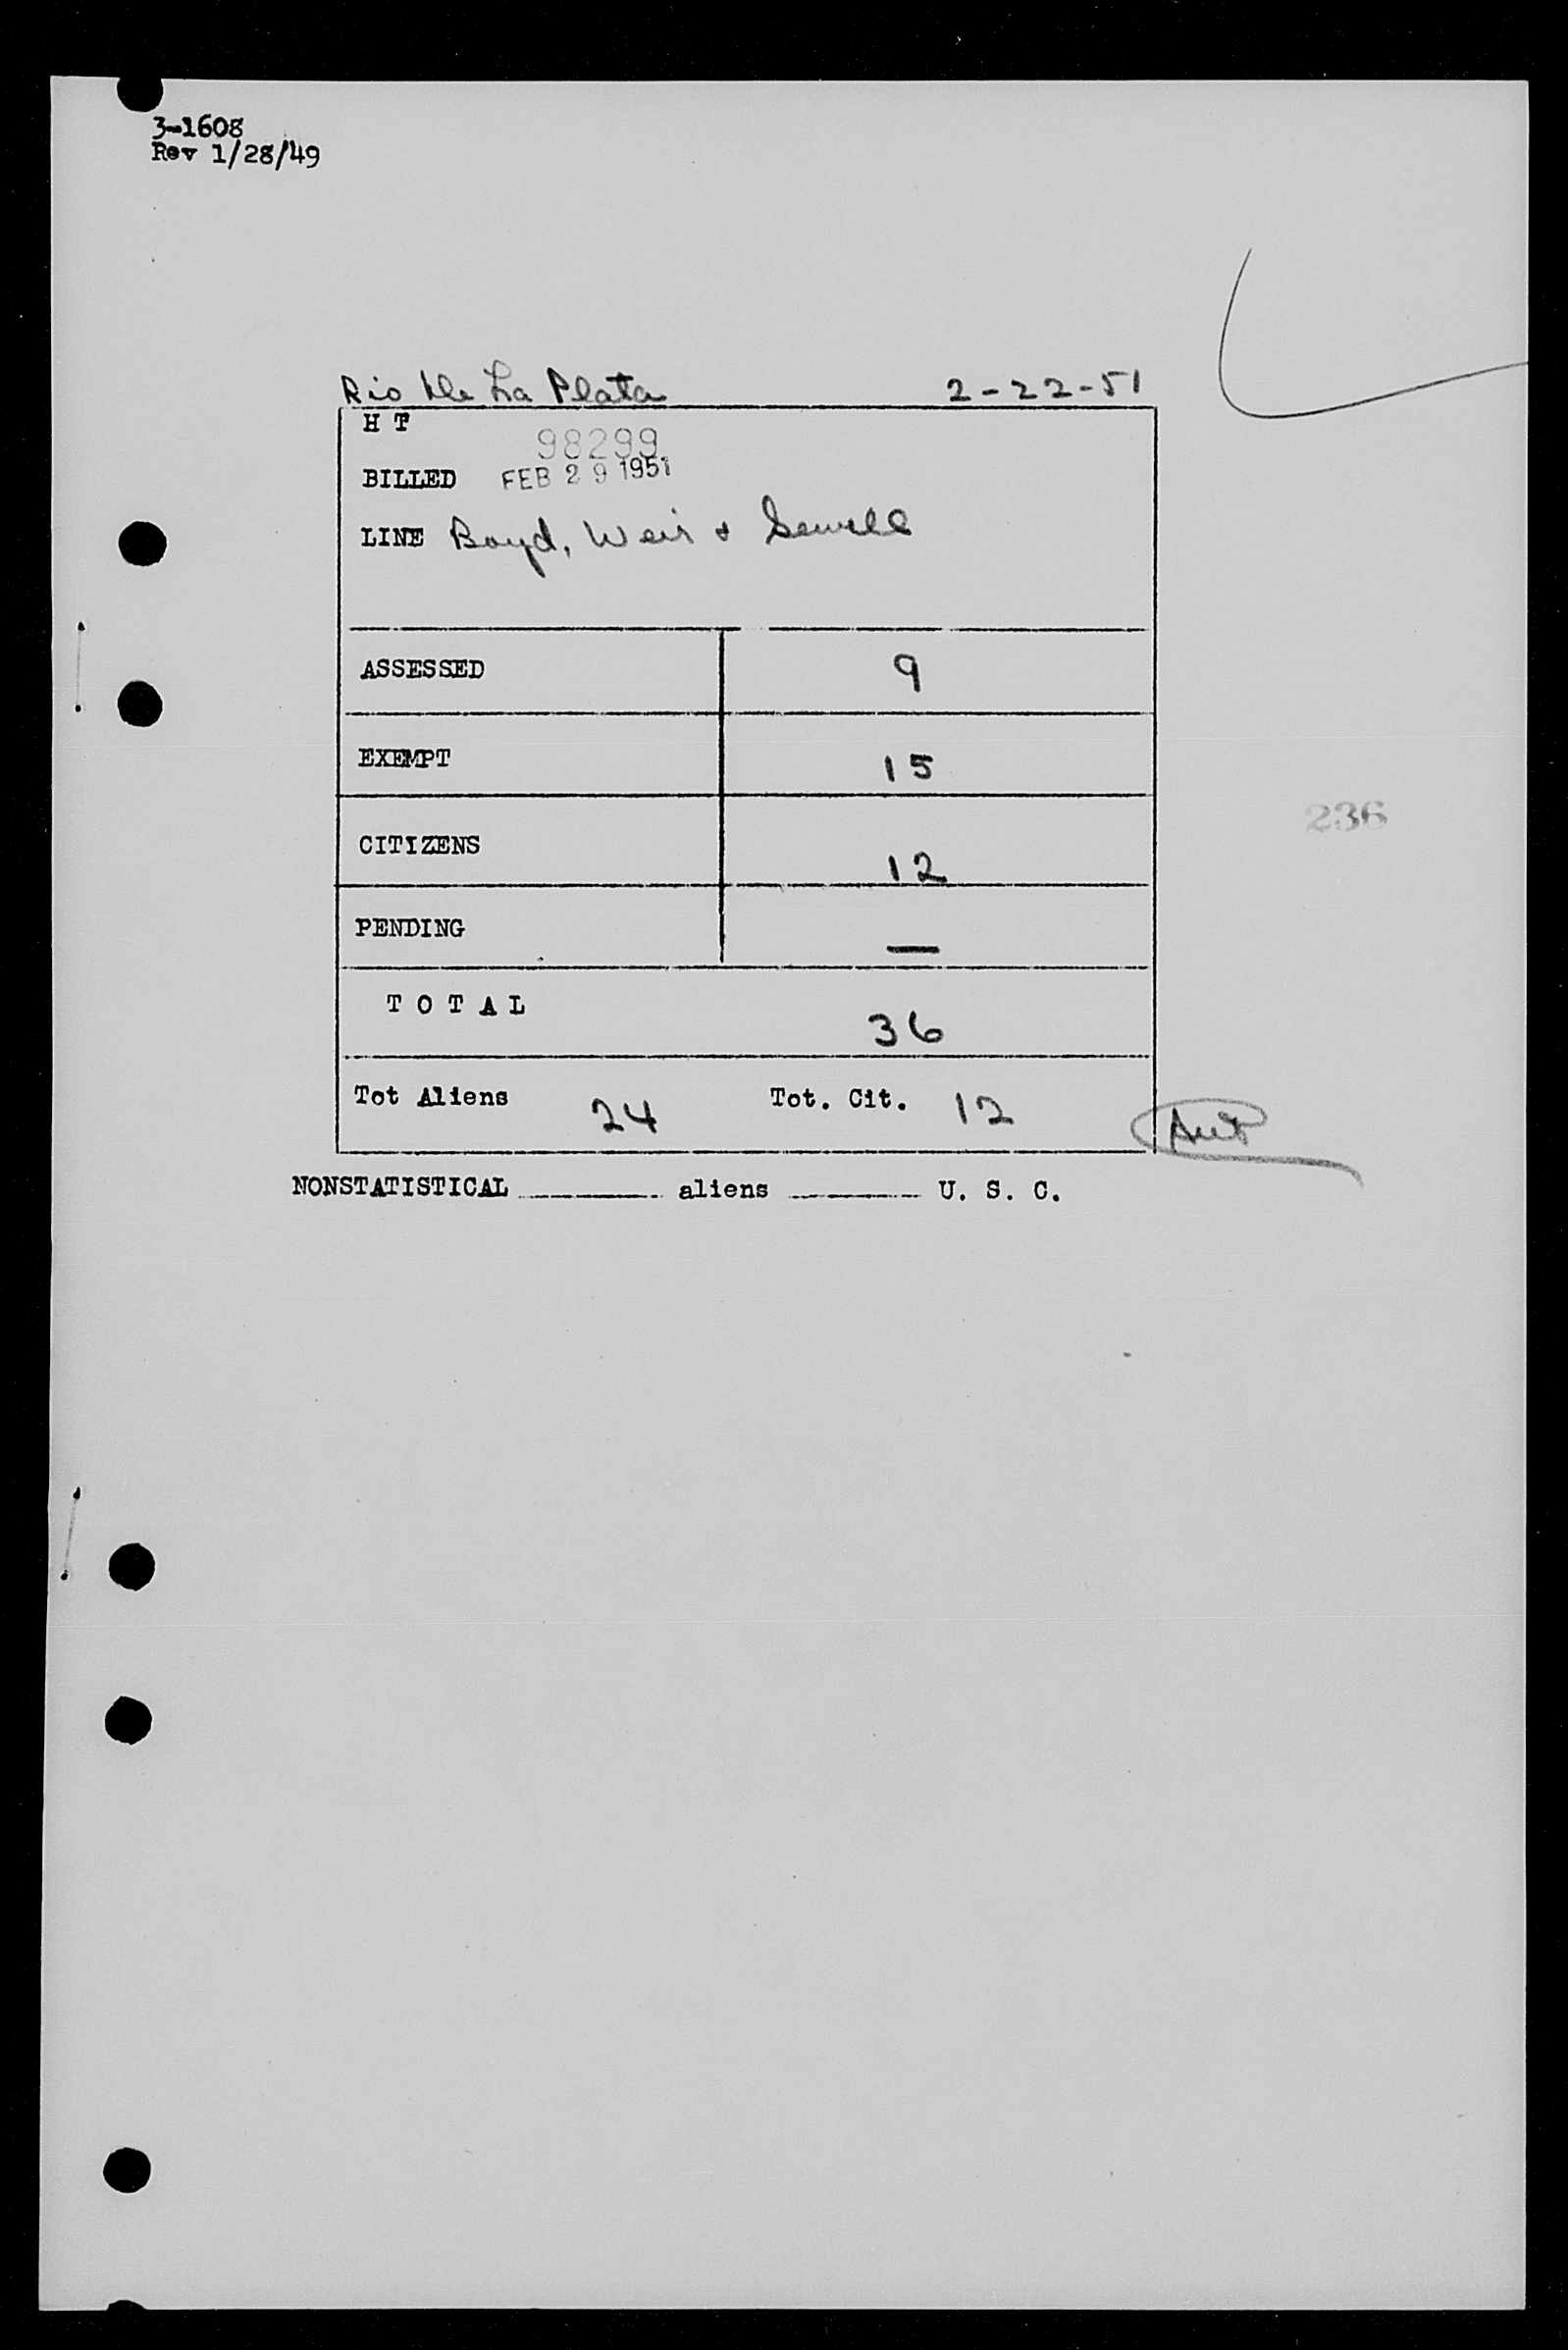 3-1608
Rev 1/28/49
Rio De La Plata 2-22-51
H T
98299
BILLED FEB 29 1951
LINE Boyd, Weir & Sewell
ASSESSED 9
EXEMPT 15
236
CITIZENS 12
PENDING —
TOTAL 36
Tot Aliens 24 Tot. Cit. 12
NONSTATISTICAL ______ aliens ______ U. S. C.